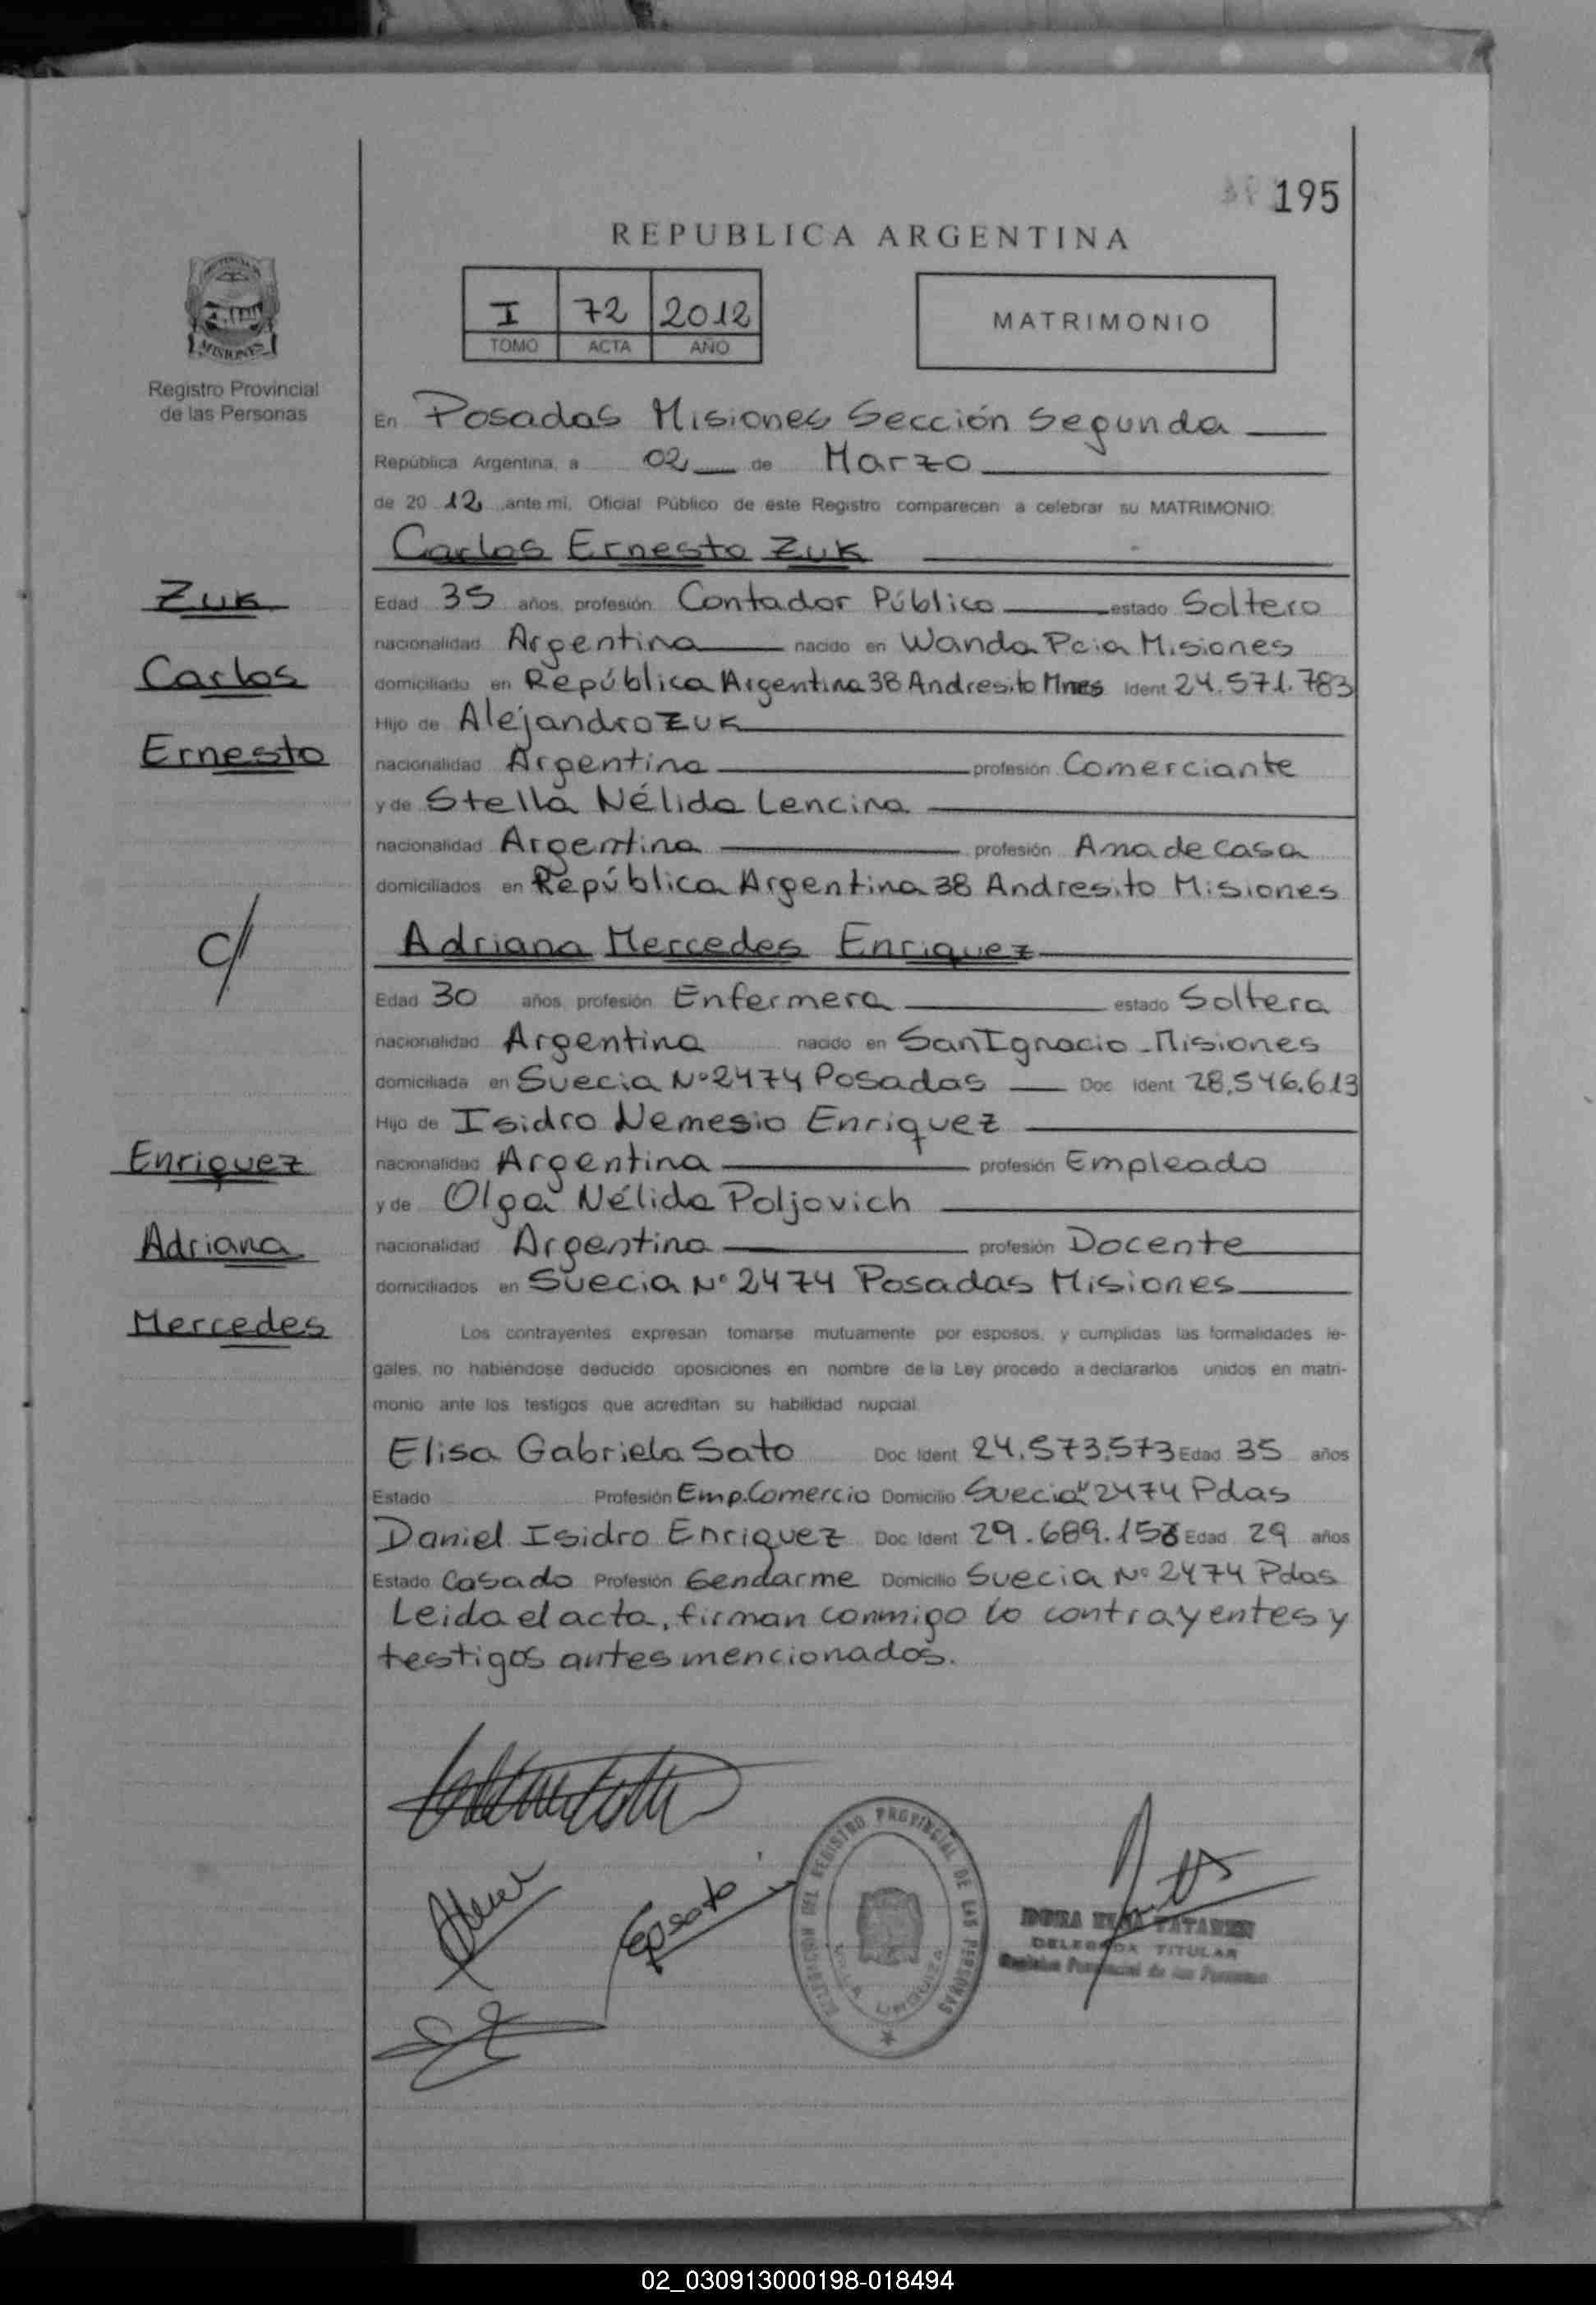 195
REPUBLICA ARGENTINA
I 72 2012
TOMO ACTA AÑO
MATRIMONIO
MISIONES
Registro Provincial
de las Personas
En Posadas Misiones Sección Segunda
República Argentina, a 02 de Marzo
de 2012 ante mi, Oficial Público de este Registro comparecen a celebrar su MATRIMONIO:
Carlos Ernesto Zuk
Zuk
Edad 35 años, profesión Contador Público estado Soltero
nacionalidad Argentina nacido en Wanda Pcia Misiones
Carlos
domiciliado en República Argentina 38 Andresito Mnes Ident 24.571.783
Hijo de Alejandro Zuk
Ernesto
nacionalidad Argentina profesión Comerciante
y de Stella Nélida Lencina
nacionalidad Argentina profesión Ama de casa
domiciliados en República Argentina 38 Andresito Misiones
c/
Adriana Mercedes Enriquez
Edad 30 años, profesión Enfermera estado Soltera
nacionalidad Argentina nacido en San Ignacio - Misiones
domiciliada en Suecia Nº 2474 Posadas Doc Ident 28.546.613
Hijo de Isidro Nemesio Enriquez
Enriquez
nacionalidad Argentina profesión Empleado
y de Olga Nélida Poljovich
Adriana
nacionalidad Argentina profesión Docente
domiciliados en Suecia Nº 2474 Posadas Misiones
Mercedes
Los contrayentes expresan tomarse mutuamente por esposos, y cumplidas las formalidades le-
gales, no habiéndose deducido oposiciones en nombre de la Ley procedo a declararlos unidos en matri-
monio ante los testigos que acreditan su habilidad nupcial
Elisa Gabriela Sato Doc Ident 24.573.573 Edad 35 años
Estado Profesión Emp. Comercio Domicilio Suecia 2474 Pdas
Daniel Isidro Enriquez Doc Ident 29.689.158 Edad 29 años
Estado Casado Profesión Gendarme Domicilio Suecia Nº 2474 Pdas
Leida el acta, firman conmigo lo contrayentes y
testigos antes mencionados.
DELEGACION DEL REGISTRO PROVINCIAL DE LAS PERSONAS
VILLA URQUIZA
DELEGADA TITULAR
Registro Provincial de las Personas
02_030913000198-018494